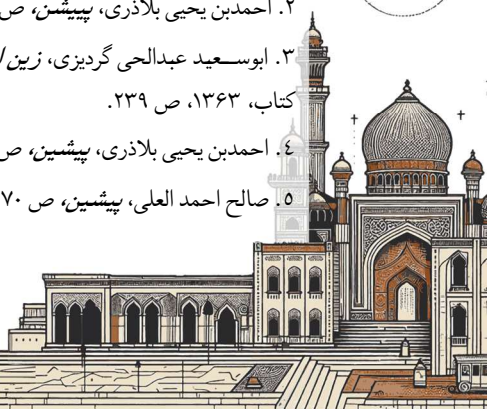 ۲. احمدبن یحیی بلاذری، پییشن، ص
۳. ابوسعید عبدالحی گردیزی، زین
کتاب، ۱۳۶۳، ص ۲۳۹.
٤. احمدبن یحیی بلاذری، پیشین، ص
۵. صالح احمد العلی، پیشین، ص ۷۰